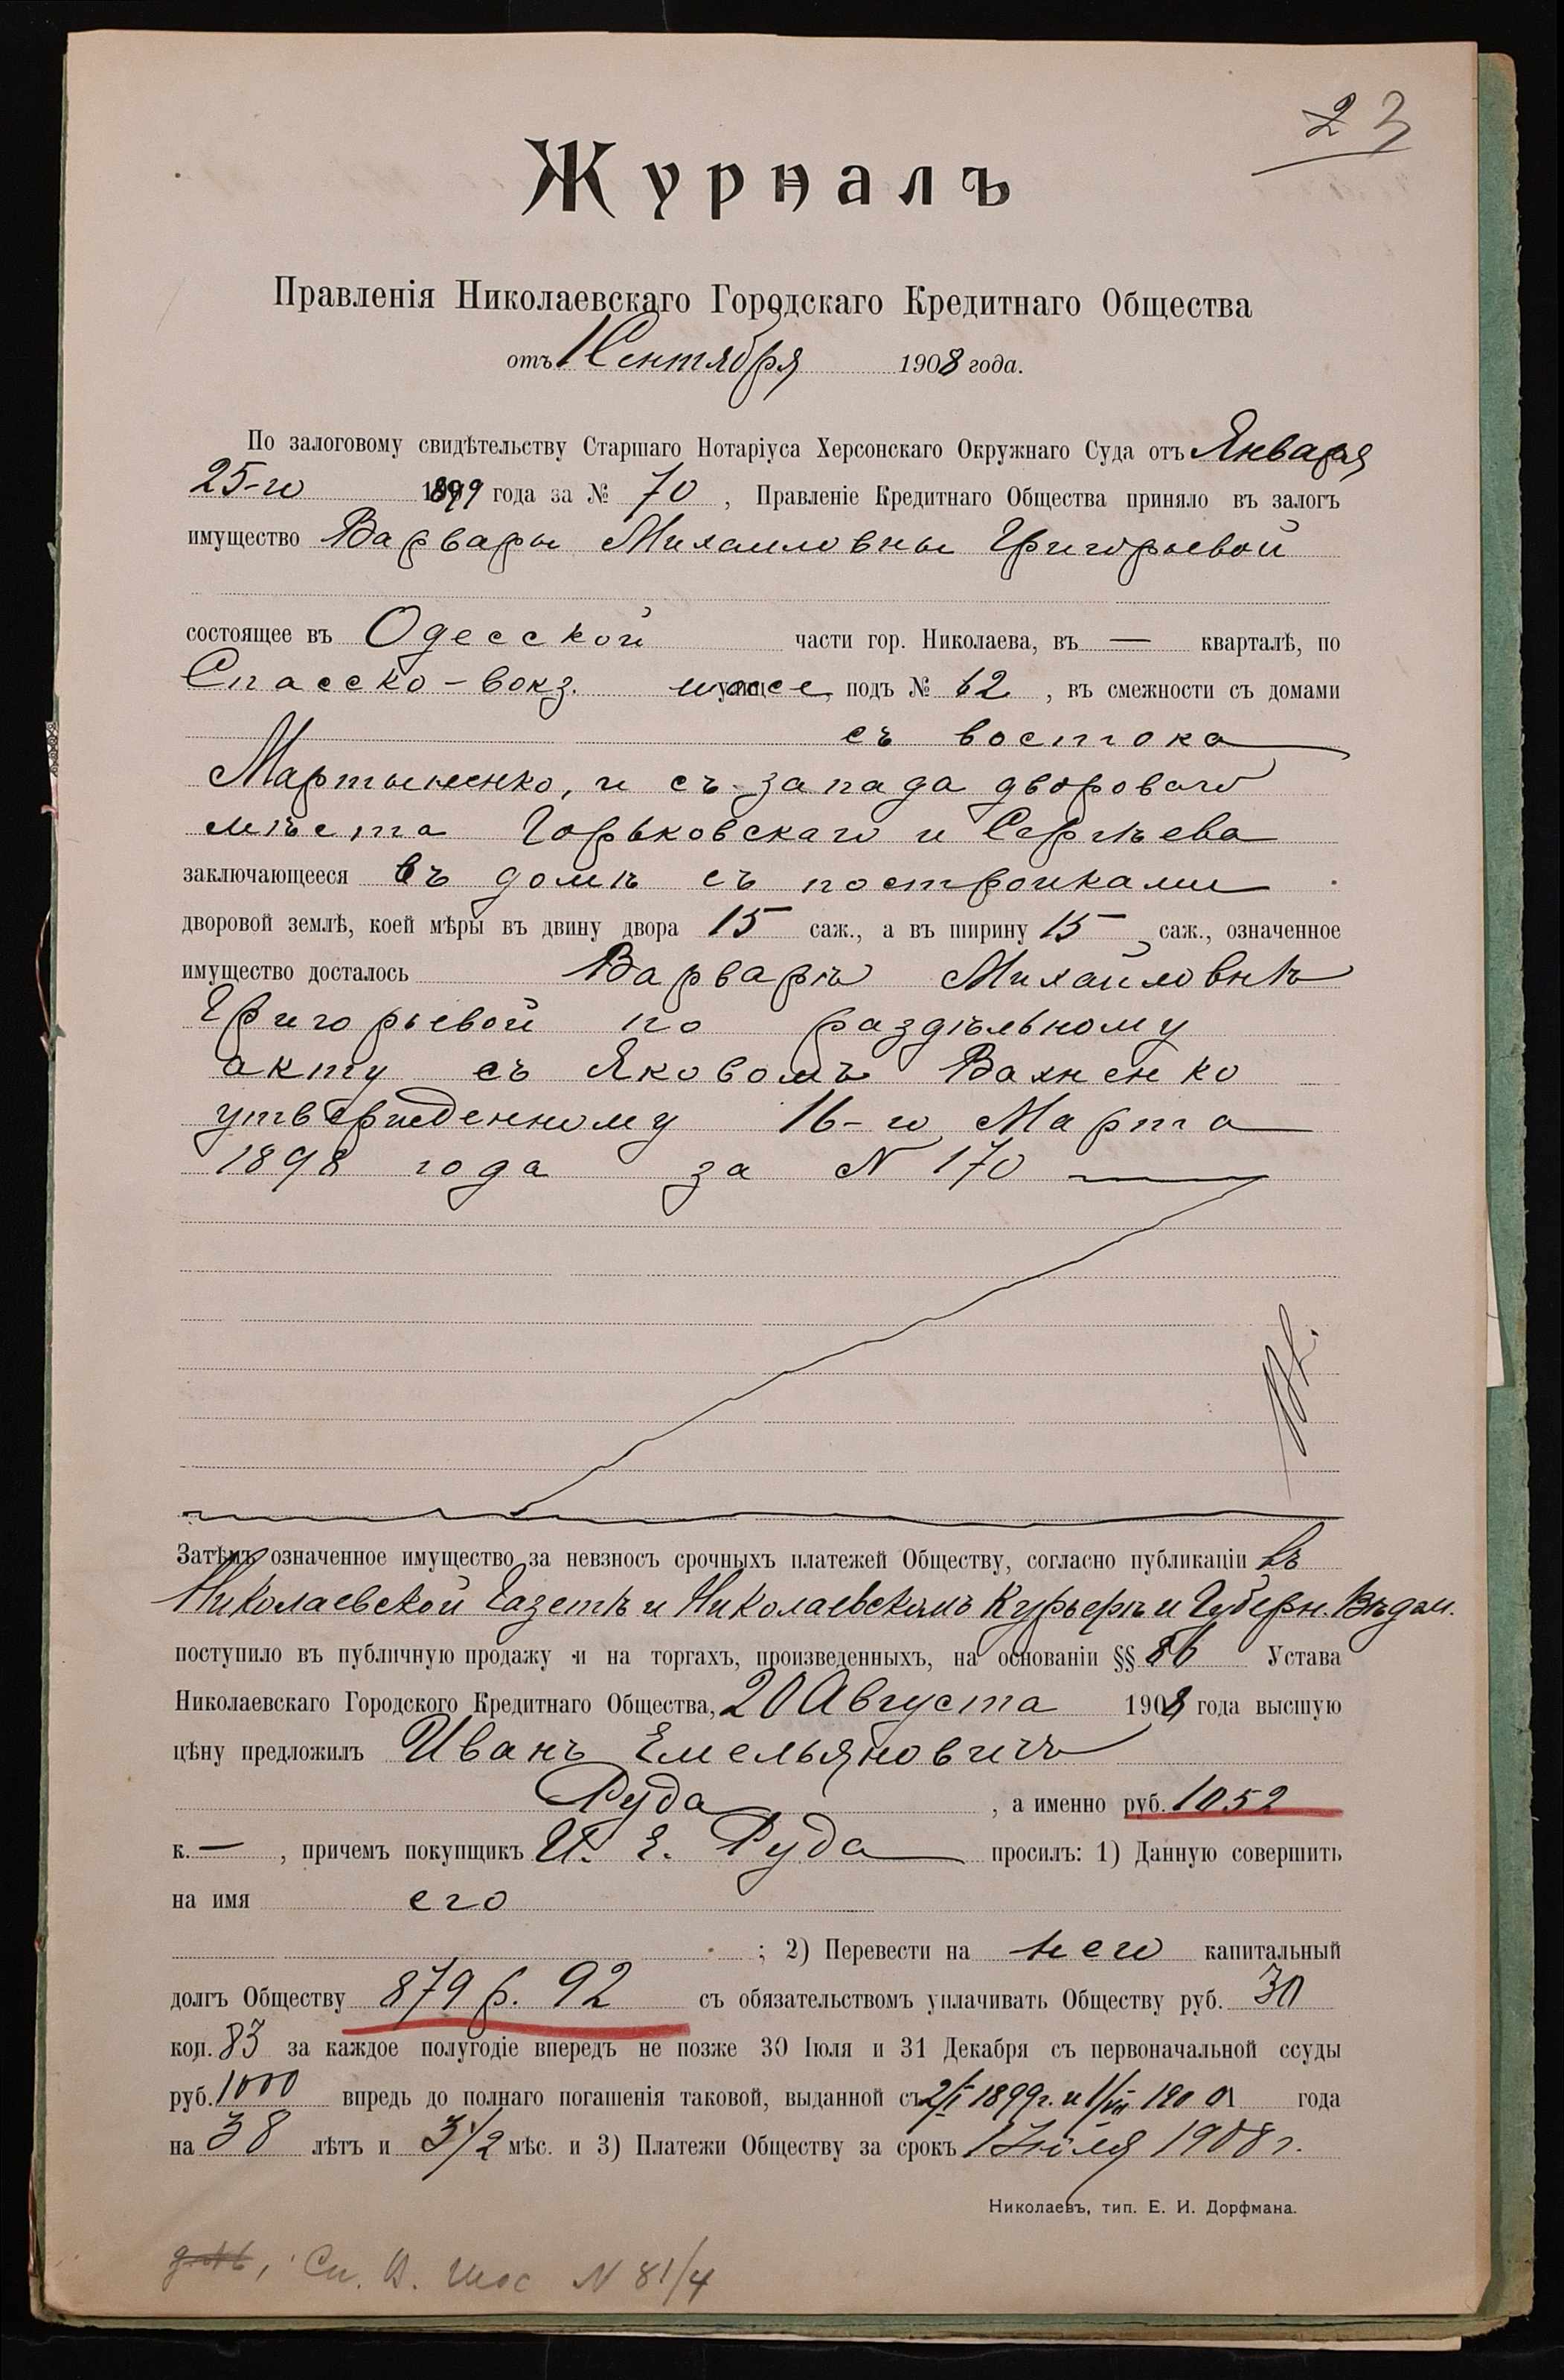 23
Журналъ
Правленія Николаевскаго Городскаго Кредитнаго Общества
отъ 1 Сентября 1908 года.
По залоговому свидѣтельству Старшаго Нотаріуса Херсонскаго Окружнаго Суда отъ Января
25-го 1899 года за № 70, Правленіе Кредитнаго Общества приняло въ залогъ
имущество Варвары Михайловны Григорьевой
состоящее въ Одесской части гор. Николаева, въ — кварталѣ, по
Спасско-вокз. шоссе, подъ № 62, въ смежности съ домами
съ востока
Мартыненко, и съ запада дворового
мѣста Горьковскаго и Сергѣева
заключающееся въ домѣ съ постройками
дворовой землѣ, коей мѣры въ двину двора 15 саж., а въ ширину 15 саж., означенное
имущество досталось Варварѣ Михайловнѣ
Григорьевой по раздѣльному
акту съ Яковомъ Вахненко
утвержденному 16-го Марта
1898 года за N 170
Затѣмъ означенное имущество за невзносъ срочныхъ платежей Обществу, согласно публикаціи въ
Николаевской Газетѣ и Николаевскомъ Курьерѣ и Губерн. Вѣдом.
поступило въ публичную продажу и на торгахъ, произведенныхъ, на основаніи §§ 86 Устава
Николаевскаго Городского Кредитнаго Общества, 20 Августа 1908 года высшую
цѣну предложилъ Иванъ Емельяновичъ
Руда, а именно руб. 1052
к. —, причемъ покупщикъ И. Е. Руда просилъ: 1) Данную совершить
на имя его
; 2) Перевести на него капитальный
долгъ Обществу 879 р. 92 съ обязательствомъ уплачивать Обществу руб. 30
коп. 83 за каждое полугодіе впередъ не позже 30 Іюля и 31 Декабря съ первоначальной ссуды
руб. 1000 впредь до полнаго погашенія таковой, выданной съ 2/I 1899 г. и 1/VII 1901 года
на 38 лѣтъ и 3 1/2 мѣс. и 3) Платежи Обществу за срокъ 1 Іюля 1908 г.
Николаевъ, тип. Е. И. Дорфмана.
Сп. В. Шос N 81/4